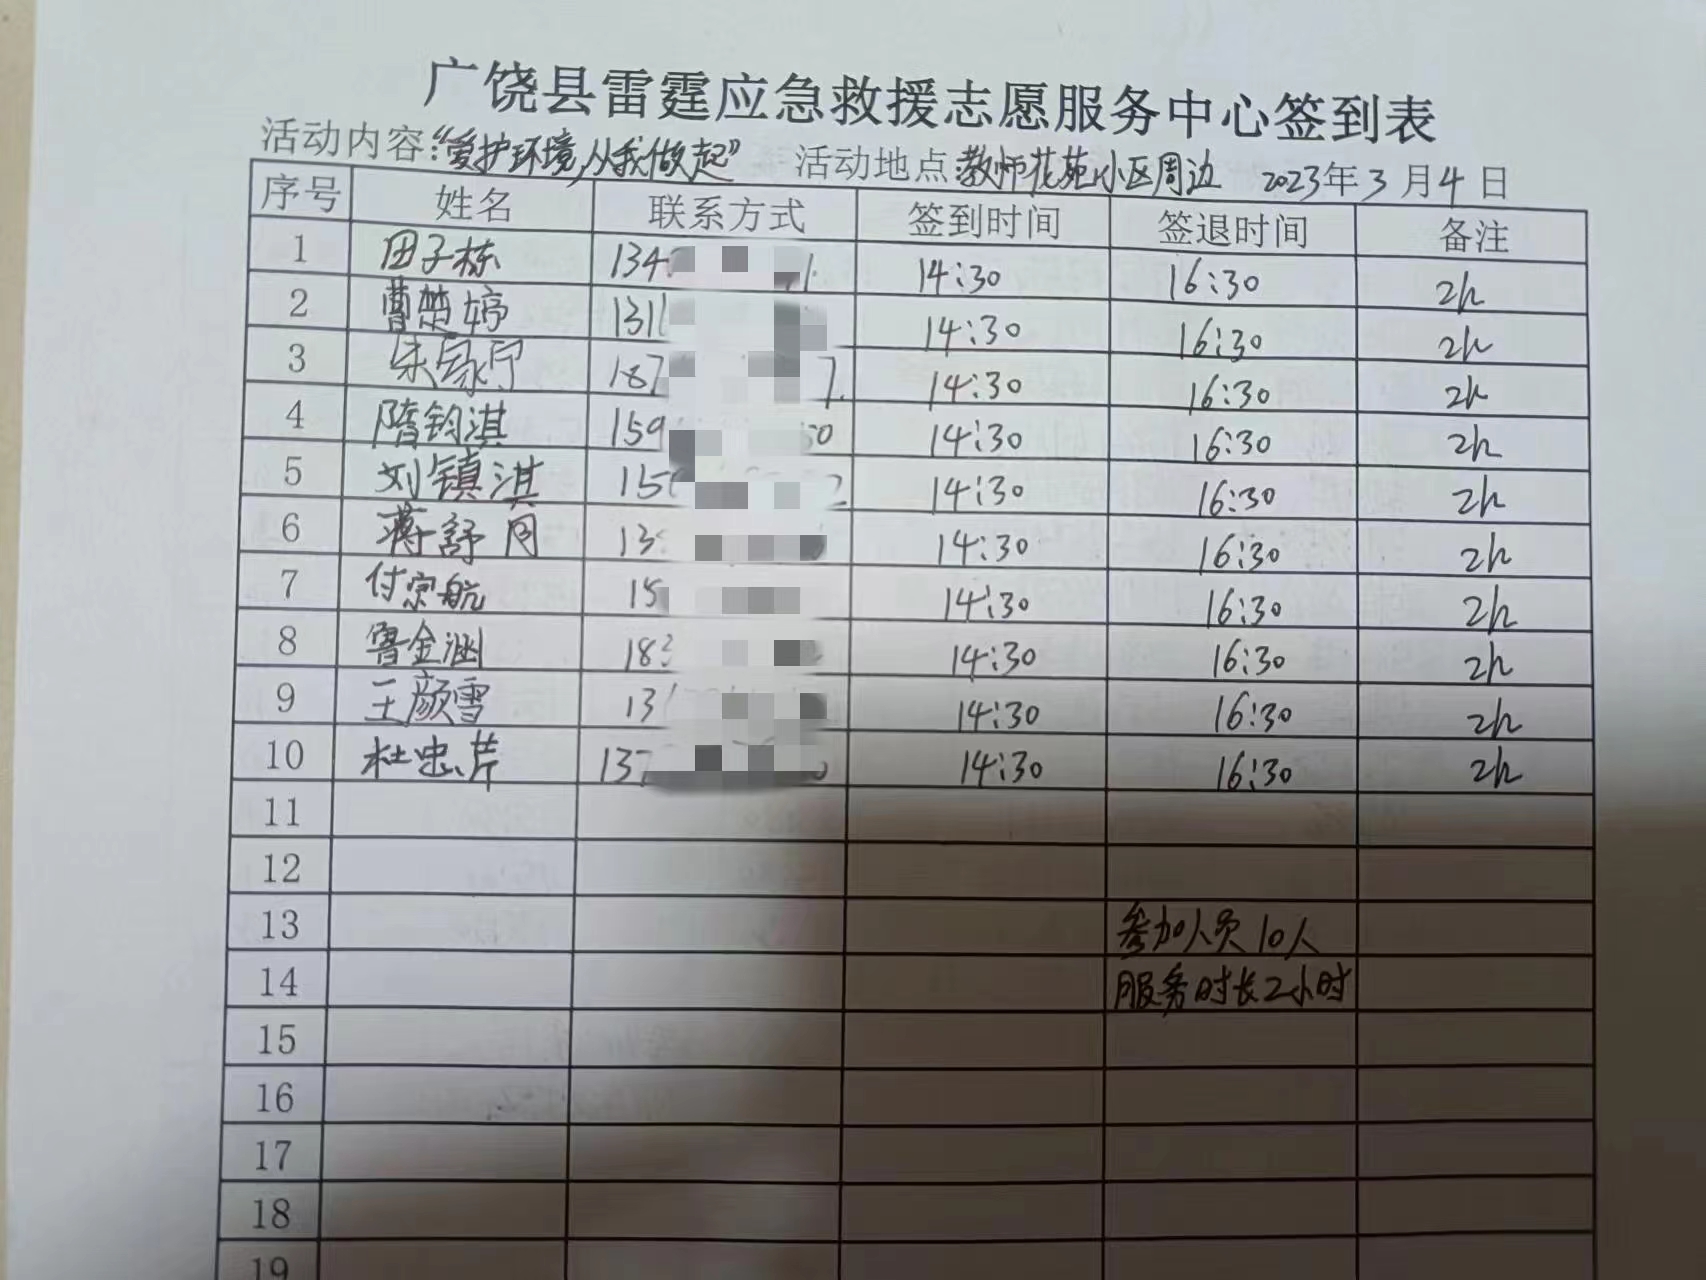 广饶县雷霆应急救援志愿服务中心签到表
活动内容:“爱护环境,从我做起” 活动地点:教师花苑小区周边 2023年3月4日
序号 姓名 联系方式 签到时间 签退时间 备注
1 田子栋 134 14:30 16:30 2h
2 曹楚婷 131 14:30 16:30 2h
3 朱家宁 187 14:30 16:30 2h
4 隋钧淇 159 50 14:30 16:30 2h
5 刘镇淇 15 2 14:30 16:30 2h
6 蒋舒月 13 14:30 16:30 2h
7 付宗航 15 14:30 16:30 2h
8 金涵 183 14:30 16:30 2h
9 王颜雪 13 14:30 16:30 2h
10 杜忠芹 137 14:30 16:30 2h
11
12
13 参加人员10人
14 服务时长2小时
15
16
17
18
19